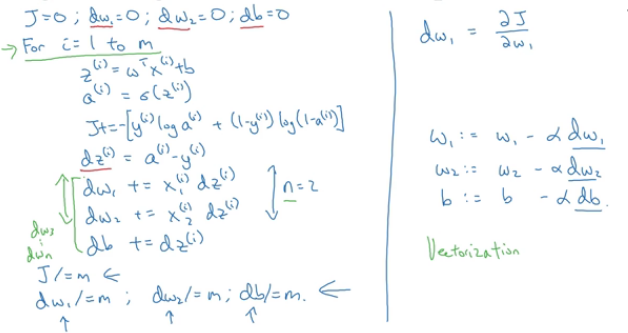 J=0 ; dw₁=0 ; dw₂=0 ; db=0
→ For i=1 to m
z⁽ⁱ⁾ = wᵀx⁽ⁱ⁾+b
a⁽ⁱ⁾ = σ(z⁽ⁱ⁾)
J+=-[y⁽ⁱ⁾ log a⁽ⁱ⁾ + (1-y⁽ⁱ⁾) log(1-a⁽ⁱ⁾)]
dz⁽ⁱ⁾ = a⁽ⁱ⁾-y⁽ⁱ⁾
dw₁ += x₁⁽ⁱ⁾ dz⁽ⁱ⁾
dw₂ += x₂⁽ⁱ⁾ dz⁽ⁱ⁾
n=2
db += dz⁽ⁱ⁾
dw₃
⋮
dwₙ
J/=m ←
dw₁/=m ; dw₂/=m ; db/=m. ←
↑ ↑ ↑
dw₁ = ∂J/∂w₁
w₁ := w₁ - α dw₁
w₂ := w₂ - α dw₂
b := b - α db.
Vectorization